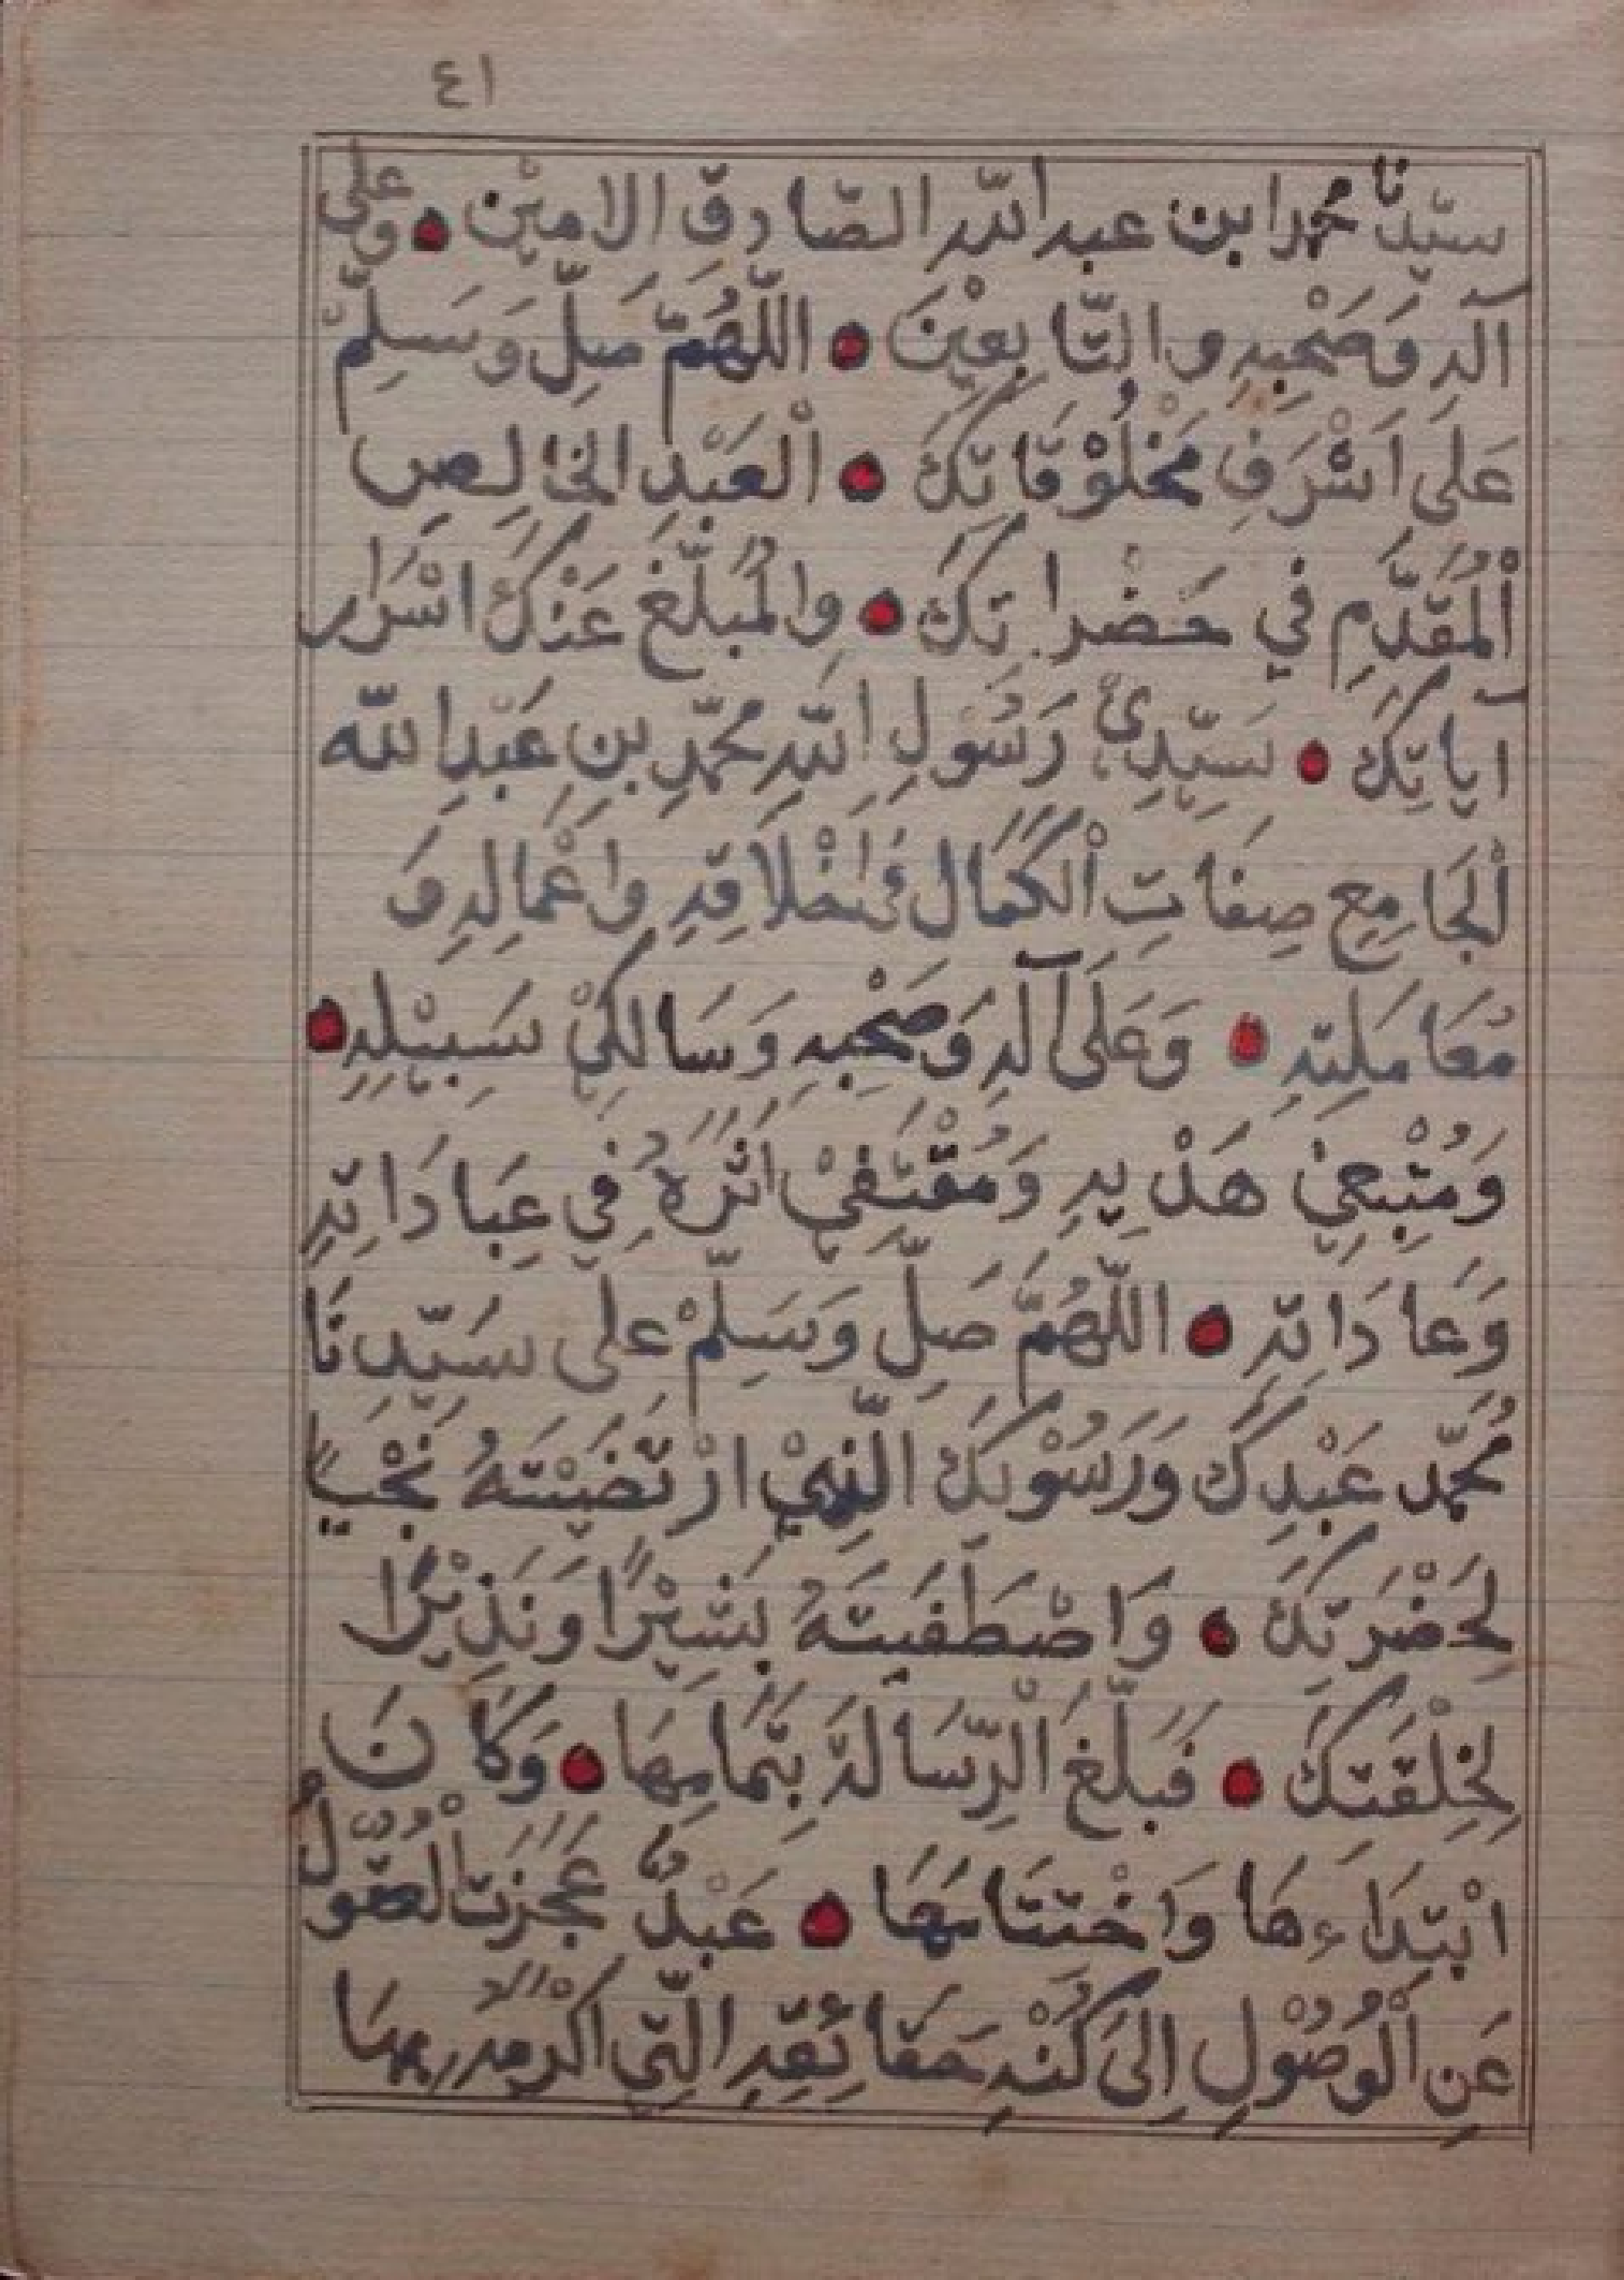 ٤١
سيّدنا محمد ابن عبد الله الصّادق الامين • وعلى
آلهِ وَصَحْبِهِ والتّابِعِيْنَ • اللّهُمّ صَلِّ وَسَلِّمْ
عَلَى اَشْرَفِ مَخْلُوْقَاتِكَ • اَلْعَبْدِ الخَالِصِ
اَلْمُقَدَّمِ فِي حَضْرَاتِكَ • وَالمُبَلِّغِ عَنْكَ اَسْرَارِ
آيَاتِكَ • سَيِّدِيْ رَسُوْلِ اللهِ مُحَمّدِ بِنِ عَبْدِ الله
اَلْجَامِعِ صِفَاتِ اَلْكَمَال فِي اَخْلَاقِهِ وَاَعْمَالِهِ وَ
مُعَامَلَتِهِ • وَعَلَى آلِهِ وَصَحْبِهِ وَسَالِكِيْ سَبِيْلِهِ •
وَمُتْبِعِيْ هَدْيِهِ وَمُقْتَفِيْ اَثَرَهُ فِي عِبَادَاتِهِ
وَعَادَاتِهِ • اللّهُمَّ صَلِّ وَسَلِّمْ عَلَى سَيِّدِنَا
مُحَمّد عَبْدِكَ وَرَسُوْلِكَ الَّذِيْ ارْتَضَيْتَهُ نَجْيًا
لِحَضْرَتِكَ • وَاصْطَفَيتَهُ بَشِيْرًا وَنَذِيْرًا
لِخِلْقَتِكَ • فَبَلَّغَ اَلرِّسَالَةَ بِتَمَامِهَا • وَكَانَ
ابْتِدَاءهَا وَاخْتتَامَهَا • عَبْدٌ عَجَزَت اَلْعُقُولُ
عَنِ اَلْوُصُوْلِ اِلَى كُنْهِ حَقَائِقِهِ الَّتِي اَكْرَمه بِهَا